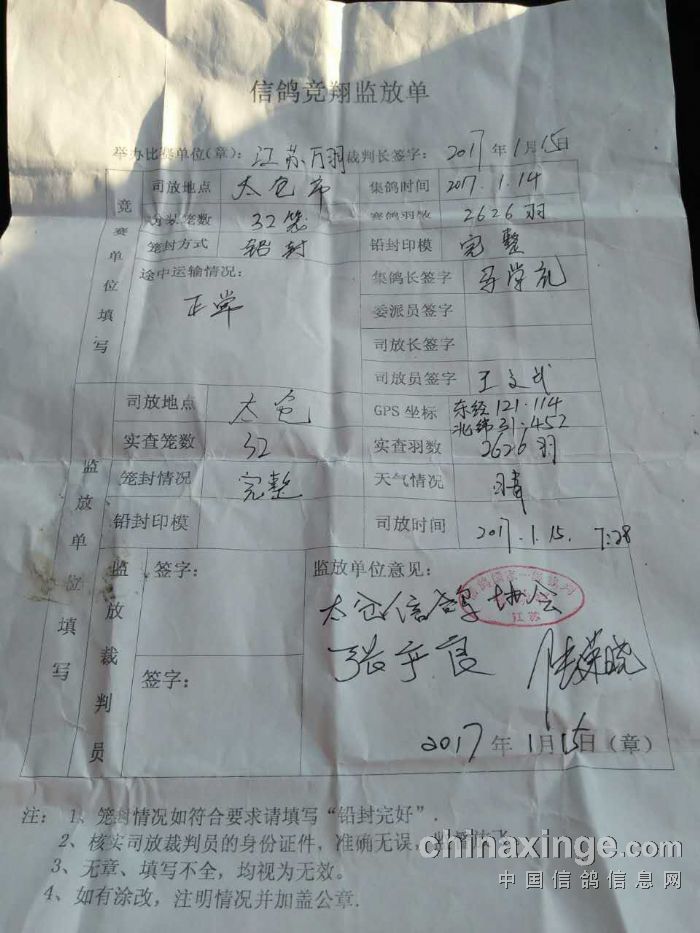 信鸽竞翔监放单
举办比赛单位(章): 江苏万羽 裁判长签字: 2017年1月15日
竞赛单位填写
司放地点 太仓市 集鸽时间 2017.1.14
笼数 32笼 赛鸽羽数 2626羽
笼封方式 铅封 铅封印模 完整
途中运输情况: 正常
集鸽长签字
委派员签字
司放长签字
司放员签字 王文武
监放单位填写
司放地点 太仓 GPS坐标 东经121.114 北纬31.452
实查笼数 32 实查羽数 2626羽
笼封情况 完整 天气情况 晴
铅封印模 司放时间 2017.1.15. 7:28
监放裁判员
签字:
签字:
监放单位意见:
太仓信鸽协会
江苏
2017年1月15日(章)
注: 1、笼封情况如符合要求请填写“铅封完好”.
2、核实司放裁判员的身份证件,准确无误,
3、无章、填写不全,均视为无效。
4、如有涂改,注明情况并加盖公章.
chinaxinge.com
中国信鸽信息网